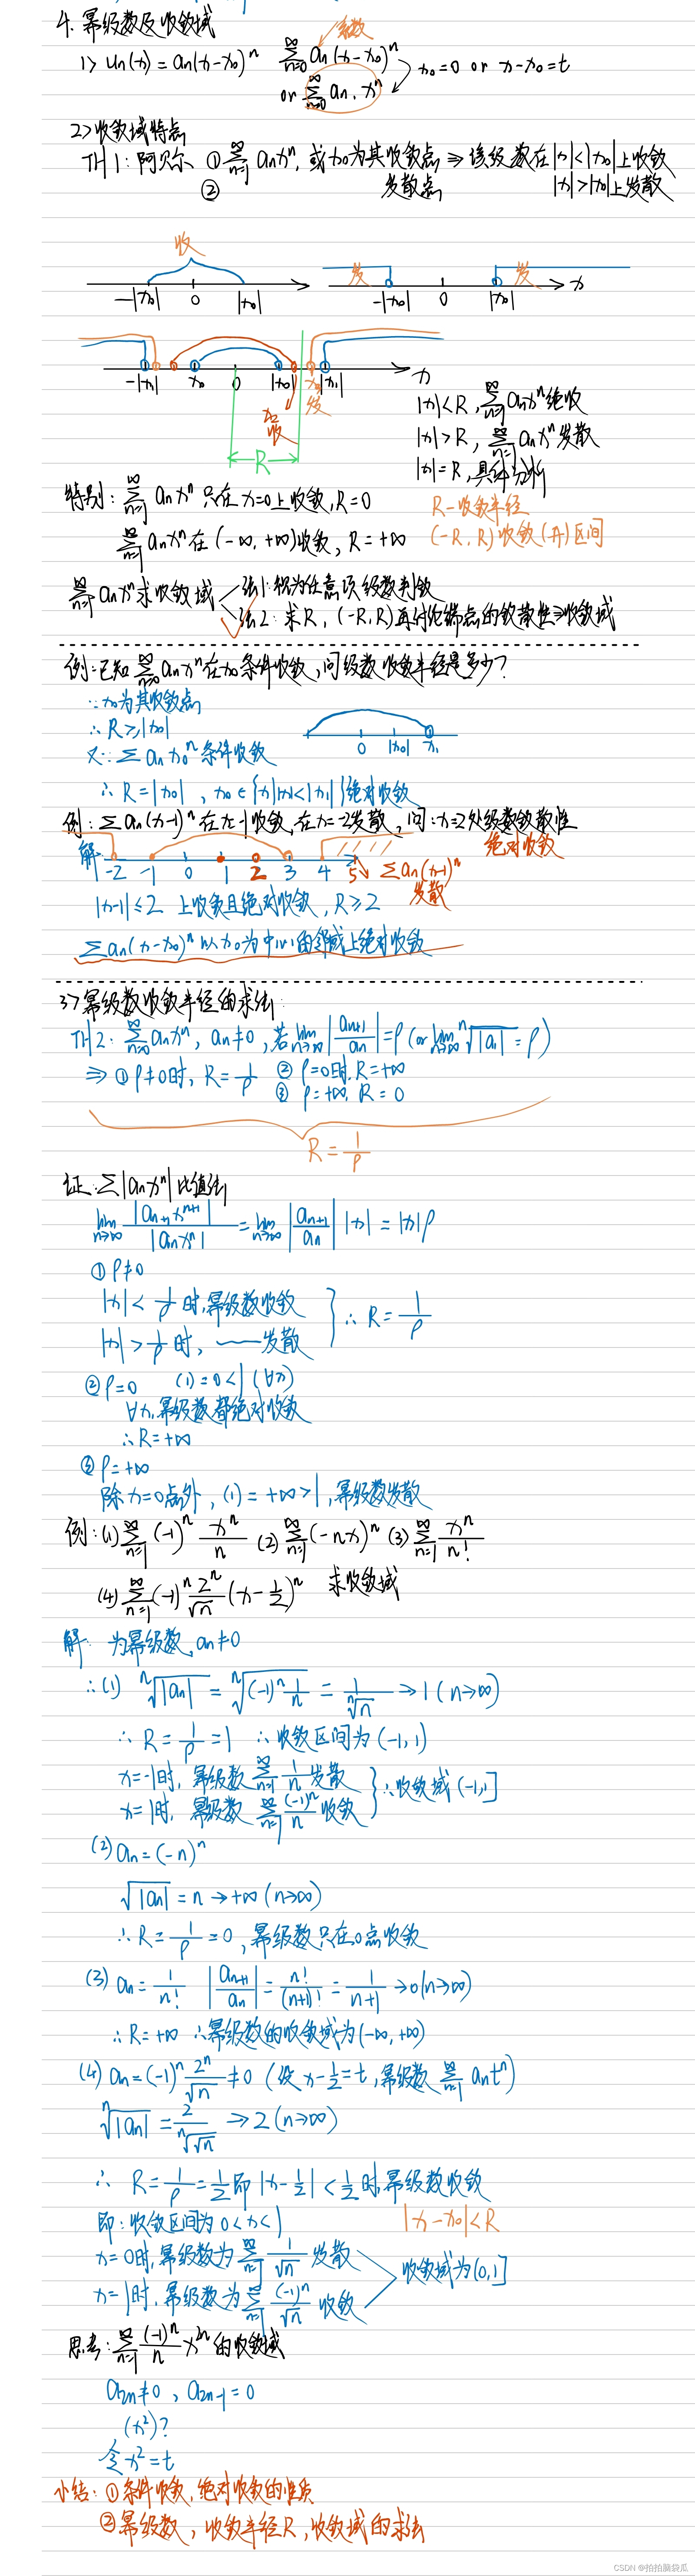 4. 幂级数及收敛域
系数
1> un(x) = an(x-x0)^n  ∑_{n=0}^∞ an(x-x0)^n
or ∑_{n=0}^∞ an·x^n  x0=0 or x-x0=t
2> 收敛域特点
TH1: 阿贝尔 ① ∑_{n=1}^∞ anx^n, 或x0为其收敛点 ⇒ 该级数在|x|<|x0|上收敛
② 发散点 |x|>|x0|上发散
收 发 发
-|x0| 0 |x0| -|x0| 0 |x0| x
-|x1| x0 0 |x0| x3 |x1| x
x2 收 发
R
|x|<R, ∑_{n=1}^∞ anx^n绝收
|x|>R, ∑_{n=1}^∞ anx^n发散
|x|=R, 具体分析
特别: ∑_{n=1}^∞ anx^n 只在x=0上收敛, R=0
R-收敛半径
∑_{n=1}^∞ anx^n在(-∞, +∞)收敛, R=+∞
(-R, R)收敛(开)区间
∑_{n=1}^∞ anx^n求收敛域 法1: 称为任意项级数判敛
法2: 求R, (-R, R)再讨论端点的敛散性⇒收敛域
例: 已知 ∑_{n=0}^∞ anx^n在x0条件收敛, 问级数收敛半径是多少?
∵ x0为其收敛点
∴ R≥|x0|
又∵ ∑anx0^n 条件收敛
0 |x0| x1
∴ R=|x0|, x0∈{x||x|<|x1|}绝对收敛
例: ∑an(x-1)^n 在x=-1收敛, 在x=-2发散, 问: x=2处级数敛散性
绝对收敛
解:
-2 -1 0 1 2 3 4 5 ∑an(x-1)^n
发散
|x-1|≤2 上收敛且绝对收敛, R≥2
∑an(x-x0)^n 以x0为中心的邻域上绝对收敛
3> 幂级数收敛半径的求法:
TH2: ∑_{n=0}^∞ anx^n, an≠0, 若lim_{n→∞}|an+1/an|=ρ (or lim_{n→∞} ⁿ√|an| = ρ)
⇒ ① ρ≠0时, R=1/ρ ② ρ=0时, R=+∞
③ ρ=+∞, R=0
R=1/ρ
证: ∑|anx^n| 比值法
lim_{n→∞} |an+1x^{n+1}|/|anx^n| = lim_{n→∞} |an+1/an| |x| = |x|ρ
① ρ≠0
|x|<1/ρ 时, 幂级数收敛
∴ R=1/ρ
|x|>1/ρ 时, —— 发散
② ρ=0 (1)=0<1 (∀x)
∀x, 幂级数都绝对收敛
∴ R=+∞
③ ρ=+∞
除x=0点外, (1)=+∞>1, 幂级数发散
例: (1) ∑_{n=1}^∞ (-1)^n x^n/n (2) ∑_{n=1}^∞ (-nx)^n (3) ∑_{n=1}^∞ x^n/n!
(4) ∑_{n=1}^∞ (-1)^n 2^n/√n (x-1/2)^n 求收敛域
解: 为幂级数, an≠0
∴ (1) ⁿ√|an| = ⁿ√((-1)^n 1/n) = 1/ⁿ√n → 1 (n→∞)
∴ R=1/ρ=1 ∴ 收敛区间为(-1, 1)
x=-1时, 幂级数 ∑_{n=1}^∞ 1/n 发散
∴收敛域(-1, 1]
x=1时, 幂级数 ∑_{n=1}^∞ (-1)^n/n 收敛
(2) an=(-n)^n
√|an| = n → +∞ (n→∞)
∴ R=1/ρ=0, 幂级数只在0点收敛
(3) an=1/n! |an+1/an| = n!/(n+1)! = 1/(n+1) → 0 (n→∞)
∴ R=+∞ ∴幂级数的收敛域为(-∞, +∞)
(4) an=(-1)^n 2^n/√n ≠0 (设x-1/2=t, 幂级数 ∑_{n=1}^∞ ant^n)
ⁿ√|an| = 2/ⁿ√√n → 2 (n→∞)
∴ R=1/ρ=1/2 即 |x-1/2|<1/2 时幂级数收敛
即: 收敛区间为 0<x<1 |x-x0|<R
x=0时, 幂级数为 ∑_{n=1}^∞ 1/√n 发散
收敛域为(0, 1]
x=1时, 幂级数为 ∑_{n=1}^∞ (-1)^n/√n 收敛
思考: ∑_{n=1}^∞ (-1)^n/n x^{2n} 的收敛域
a2n≠0, a2n-1=0
(x²)?
令x²=t
小结: ①条件收敛, 绝对收敛的性质
②幂级数, 收敛半径R, 收敛域的求法
CSDN @拍拍脑袋瓜